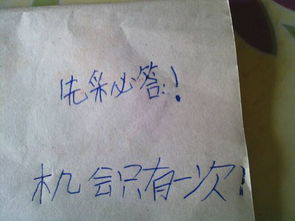 先采必答!
机会只有一次!